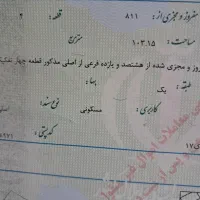 مفروز و مجزی از : ۸۱۱ قطعه : ۴
مساحت : ۱۰۳.۱۵ مترمربع
روز و مجزی شده از هشتصد و یازده فرعی از اصلی مذکور قطعه چهار تفکیک
طبقه : یک بها :
کاربری : مسکونی نوع سند :
کد پستی :